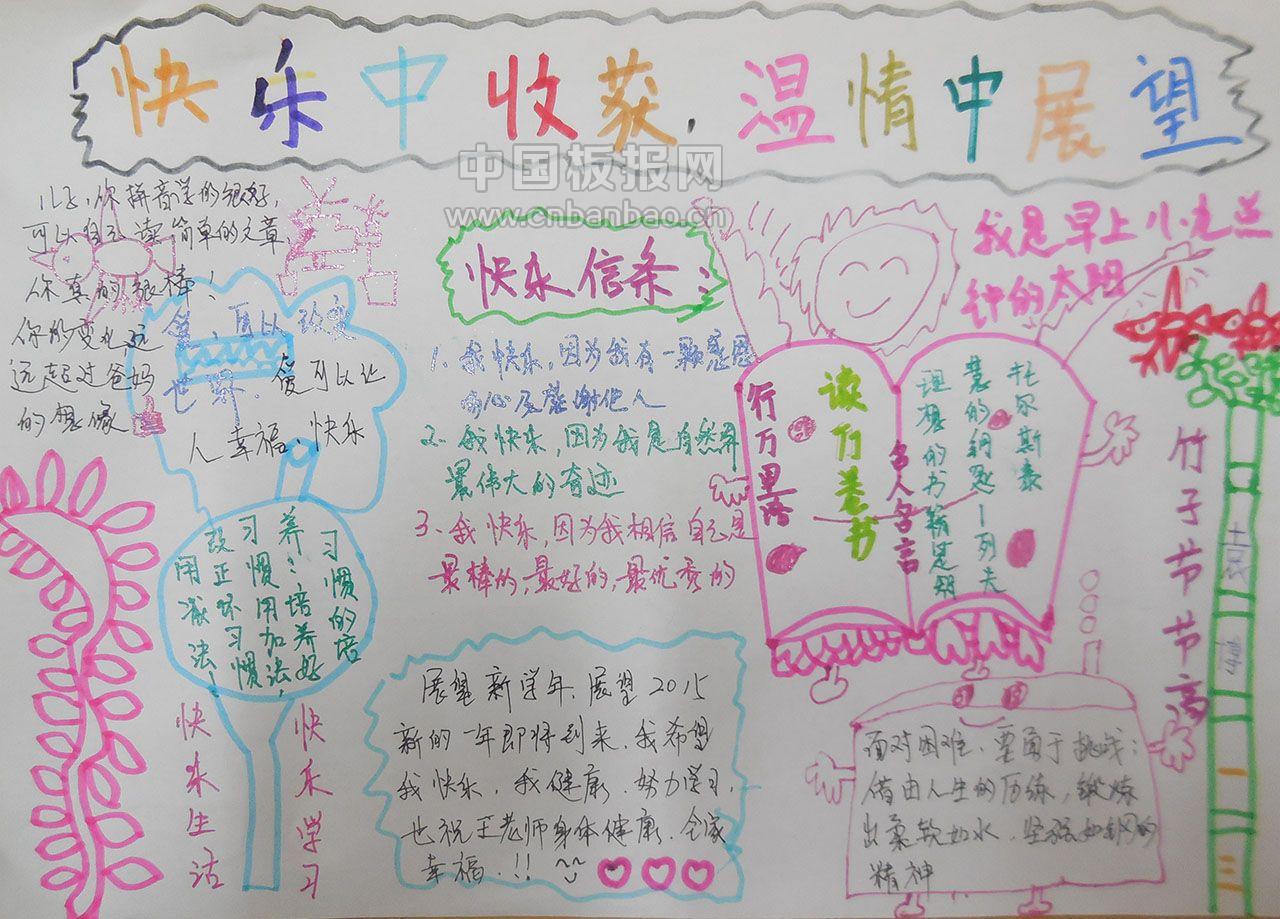 快乐中收获，温情中展望
中国板报网
www.cnbanbao.cn
儿子，你拼音学的很好，
可以自己读简单的文章，
你真的很棒！
你的变化远
远超过爸妈
的想像
爱，可以改变
世界，爱可以让
人幸福、快乐
快乐信条：
1、我快乐，因为我有一颗感恩
的心及感谢他人
2、我快乐，因为我是自然界
最伟大的奇迹
3、我快乐，因为我相信自己是
最棒的，最好的，最优秀的
我是早上八九点
钟的太阳
读万卷书
行万里路
名人名言
理想的书籍是智
慧的钥匙－列夫
托尔斯泰
竹子节节高
习惯的培
养：培养好
习惯用加法，
改正坏习惯
用减法！
快乐生活
快乐学习
展望新学年，展望2015
新的一年即将到来，我希望
我快乐，我健康，努力学习，
也祝王老师身体健康，全家
幸福，!!
面对困难，要勇于挑战；
借由人生的历练，锻炼
出柔软如水，坚强如钢的
精神
一
二